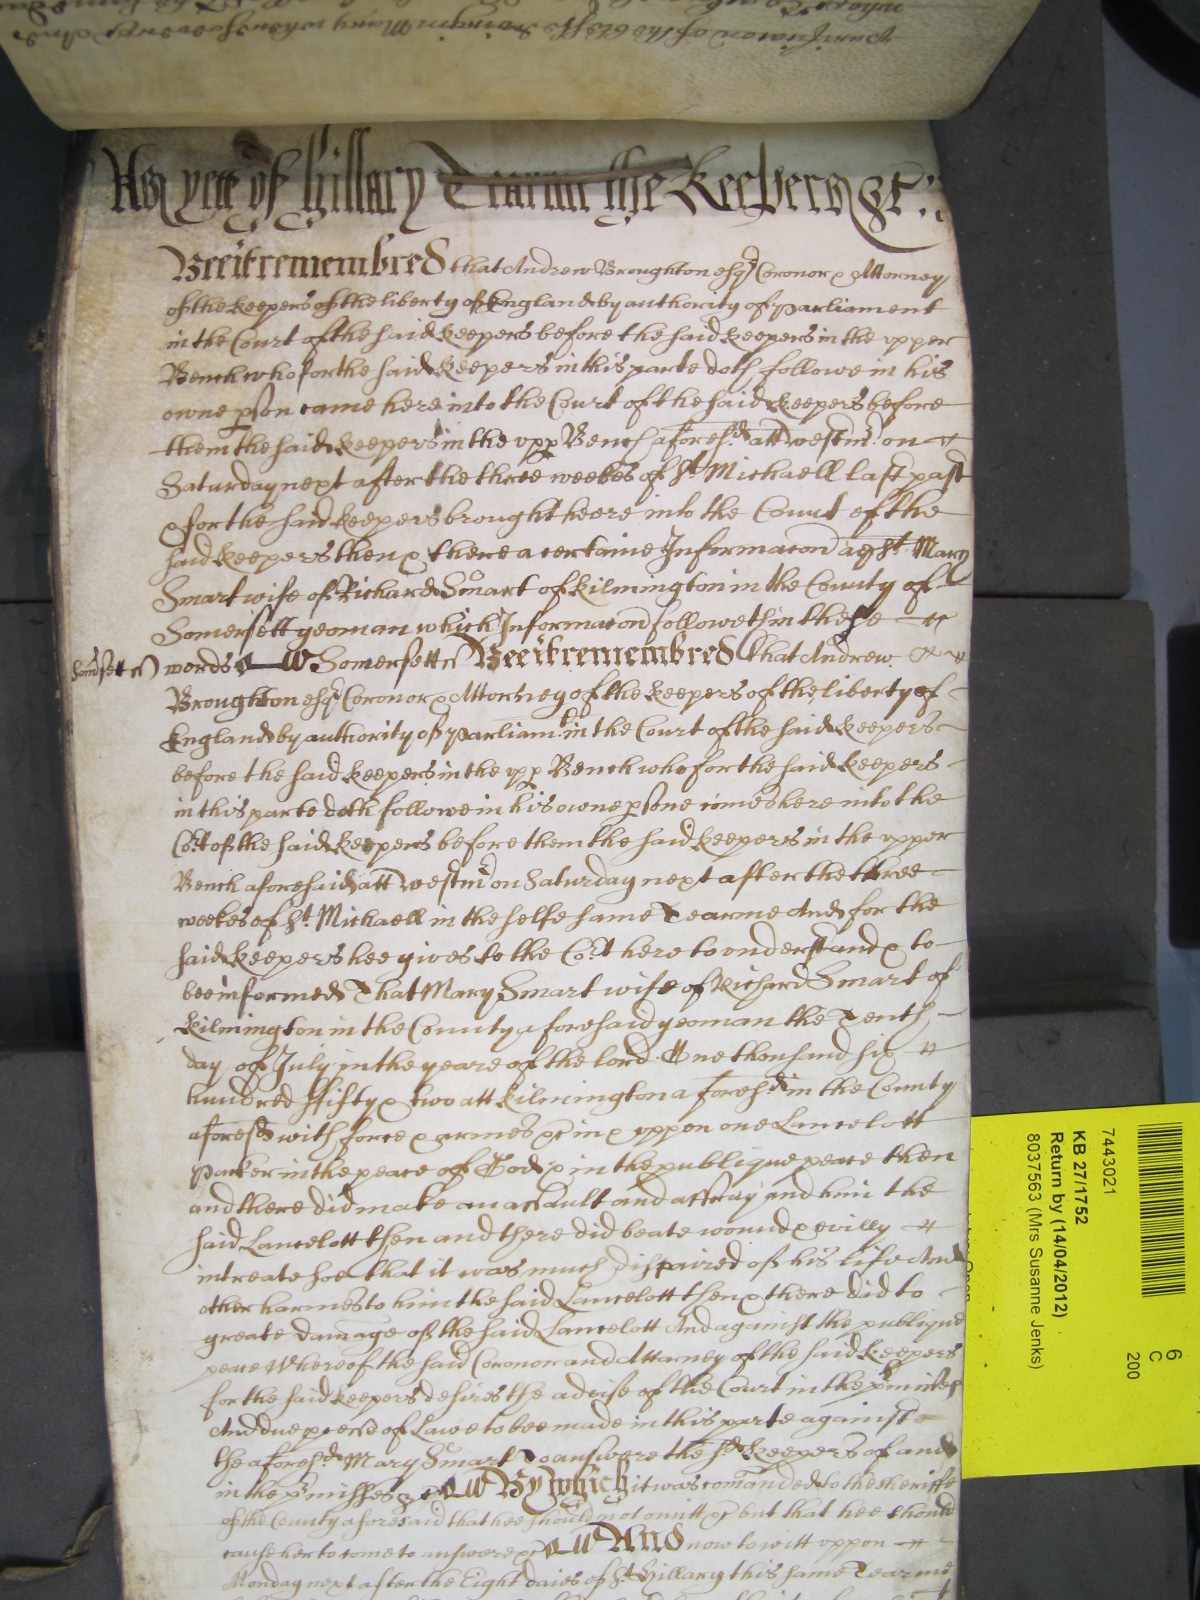 As yett of Hillary Tearme The Keepers &c:
Bee it remembred that Andrew Broughton esqr Coronor & Attorney
of the keepers of the liberty of England by authority of parliament
in the Court of the said keepers before the said keepers in the upper
Bench who for the said keepers in this parte doth followe in his
owne pson came here into the Court of the said keepers before
them the said keepers in the upp Bench aforesd att westmr on
Saturday next after the three weekes of St Michaell last past
& for the said keepers brought heere into the Court of the
said keepers then & there a certaine Informacon agst Mary
Smart wife of Richard Smart of Kilmington in the County of
Somersett yeoman which Informacon followeth in these
words Somersett Bee it remembred that Andrew
Broughton esqr Coronor & Attorney of the keepers of the liberty of
England by authority of parliamt in the Court of the said keepers
before the said keepers in the upp Bench who for the said keepers
in this parte doth followe in his owne psone comes here into the
Cort of the said keepers before them the said keepers in the upper
Bench aforesaid att westmr on Saturday next after the three
weekes of St Michaell in the selfe same Tearme And for the
said keepers hee gives to the Cort here to understand & to
bee informed That Mary Smart wife of Richard Smart of
Kilmington in the County aforesaid yeoman the Tenth
day of July in the yeare of the lord One thousand six
hundred fifty & two att Kilmington aforesd in the County
aforesd with force & armes &c in & uppon one Lancelott
Parker in the peace of God & in the publique peace then
and there did make an assault and affray and him the
said Lancelott then and there did beate wound & evilly
intreate soe that it was much dispaired of his life And
other harmes to him the said Lancelott then & there did to
greate damage of the said Lancelott And against the publique
peace Whereof the said Coronor and Attorney of the said keepers
for the said keepers desires the advise of the Court in the pmisses
And due pcesse of Lawe to bee made in this parte against
the aforesd Mary Smart To answere the sd keepers of and
in the pmisses &c By which it was comanded to the sheriffe
of the County aforesaid that hee should not omitt &c but that hee should
cause her to come to answere &c And now to witt uppon
Monday next after the Eight daies of St Hillary this same Tearme
7443021
KB 27/1752
Return by (14/04/2012)
8037563 (Mrs Susanne Jenks)
6
C
200